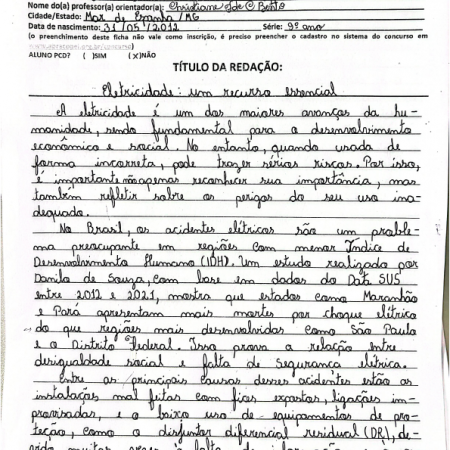 Nome do(a) professor(a) orientador(a): Christiane Ide C Betto
Cidade/Estado: Mar de Espanha/MG
Data de nascimento: 31/05/2012 Série: 9º ano
(o preenchimento desta ficha não vale como inscrição, é preciso preencher o cadastro no sistema do concurso em
ALUNO PCD? ( )SIM (x)NÃO
TÍTULO DA REDAÇÃO:
Eletricidade: um recurso essencial
A eletricidade é um dos maiores avanços da hu-
manidade, sendo fundamental para o desenvolvimento
econômico e social. No entanto, quando usada de
forma incorreta, pode trazer sérios riscos. Por isso,
é importante não apenas reconhecer sua importância, mas
também refletir sobre os perigos do seu uso ina-
dequado.
No Brasil, os acidentes elétricos são um proble-
ma preocupante em regiões com menor Índice de
Desenvolvimento Humano (IDH). Um estudo realizado por
Danilo de Souza, com base em dados do Data SUS
entre 2012 e 2021, mostra que estados como Maranhão
e Pará apresentam mais mortes por choque elétrico
do que regiões mais desenvolvidas como São Paulo
e o Distrito Federal. Isso prova a relação entre
desigualdade social e falta de Segurança elétrica.
Entre as principais causas desses acidentes estão as
instalações mal feitas com fios expostos, ligações im-
provisadas, e o baixo uso de equipamentos de pro-
teção, como o disjuntor diferencial residual (DR), de-
vido muitas vezes à falta de